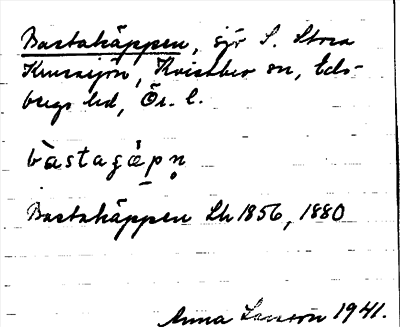 Bastakäppen, sjö S. Stora
Kvarsjön, Kvistbro sn, Eds-
bergs hd, Ör. l.
bàstagæ̀pn̥
Bastakäppen Lh 1856, 1880
Anna Larsson 1941.